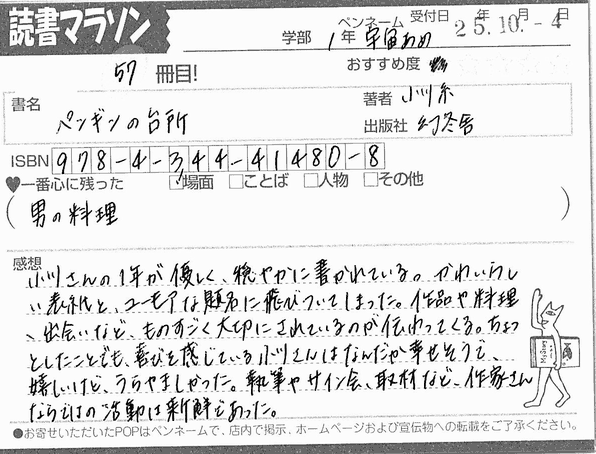 読書マラソン
学部 1年 ペンネーム 宇宙あめ 受付日 25年10月-4日
57 冊目!
おすすめ度
書名 ペンギンの台所
著者 小川糸
出版社 幻冬舎
ISBN 978-4-344-41480-8
♥一番心に残った □場面 □ことば □人物 □その他
(男の料理)
感想
小川さんの1年が優しく、穏やかに書かれている。かわいらし
い表紙と、ユーモアな題名に飛びついてしまった。作品や料理
、出会いなど、ものすごく大切にされているのが伝わってくる。ちょっ
としたことでも、喜びを感じている小川さんはなんだか幸せそうで、
嬉しいけど、うらやましかった。執筆やサイン会、取材など、作家さん
ならではの活動は新鮮であった。
●お寄せいただいたPOPはペンネームで、店内で掲示、ホームページおよび宣伝物への転載をご了承ください。